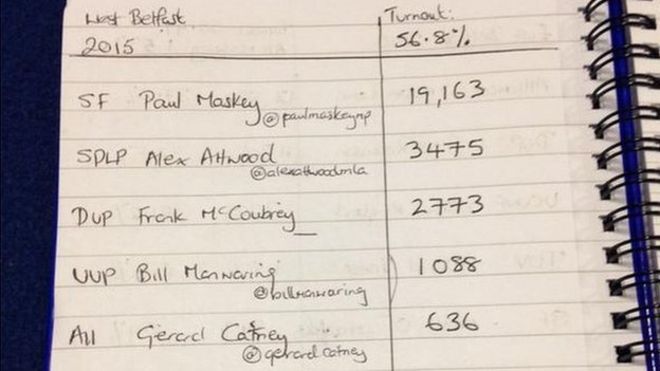 West Belfast
Turnout:
2015
56.8%
SF Paul Maskey 19,163
@paulmaskeymp
SDLP Alex Attwood 3475
@alexattwoodmla
DUP Frank McCoubrey 2773
UUP Bill Manwaring 1088
@billmanwaring
All Gerard Catney 636
@gerardcatney